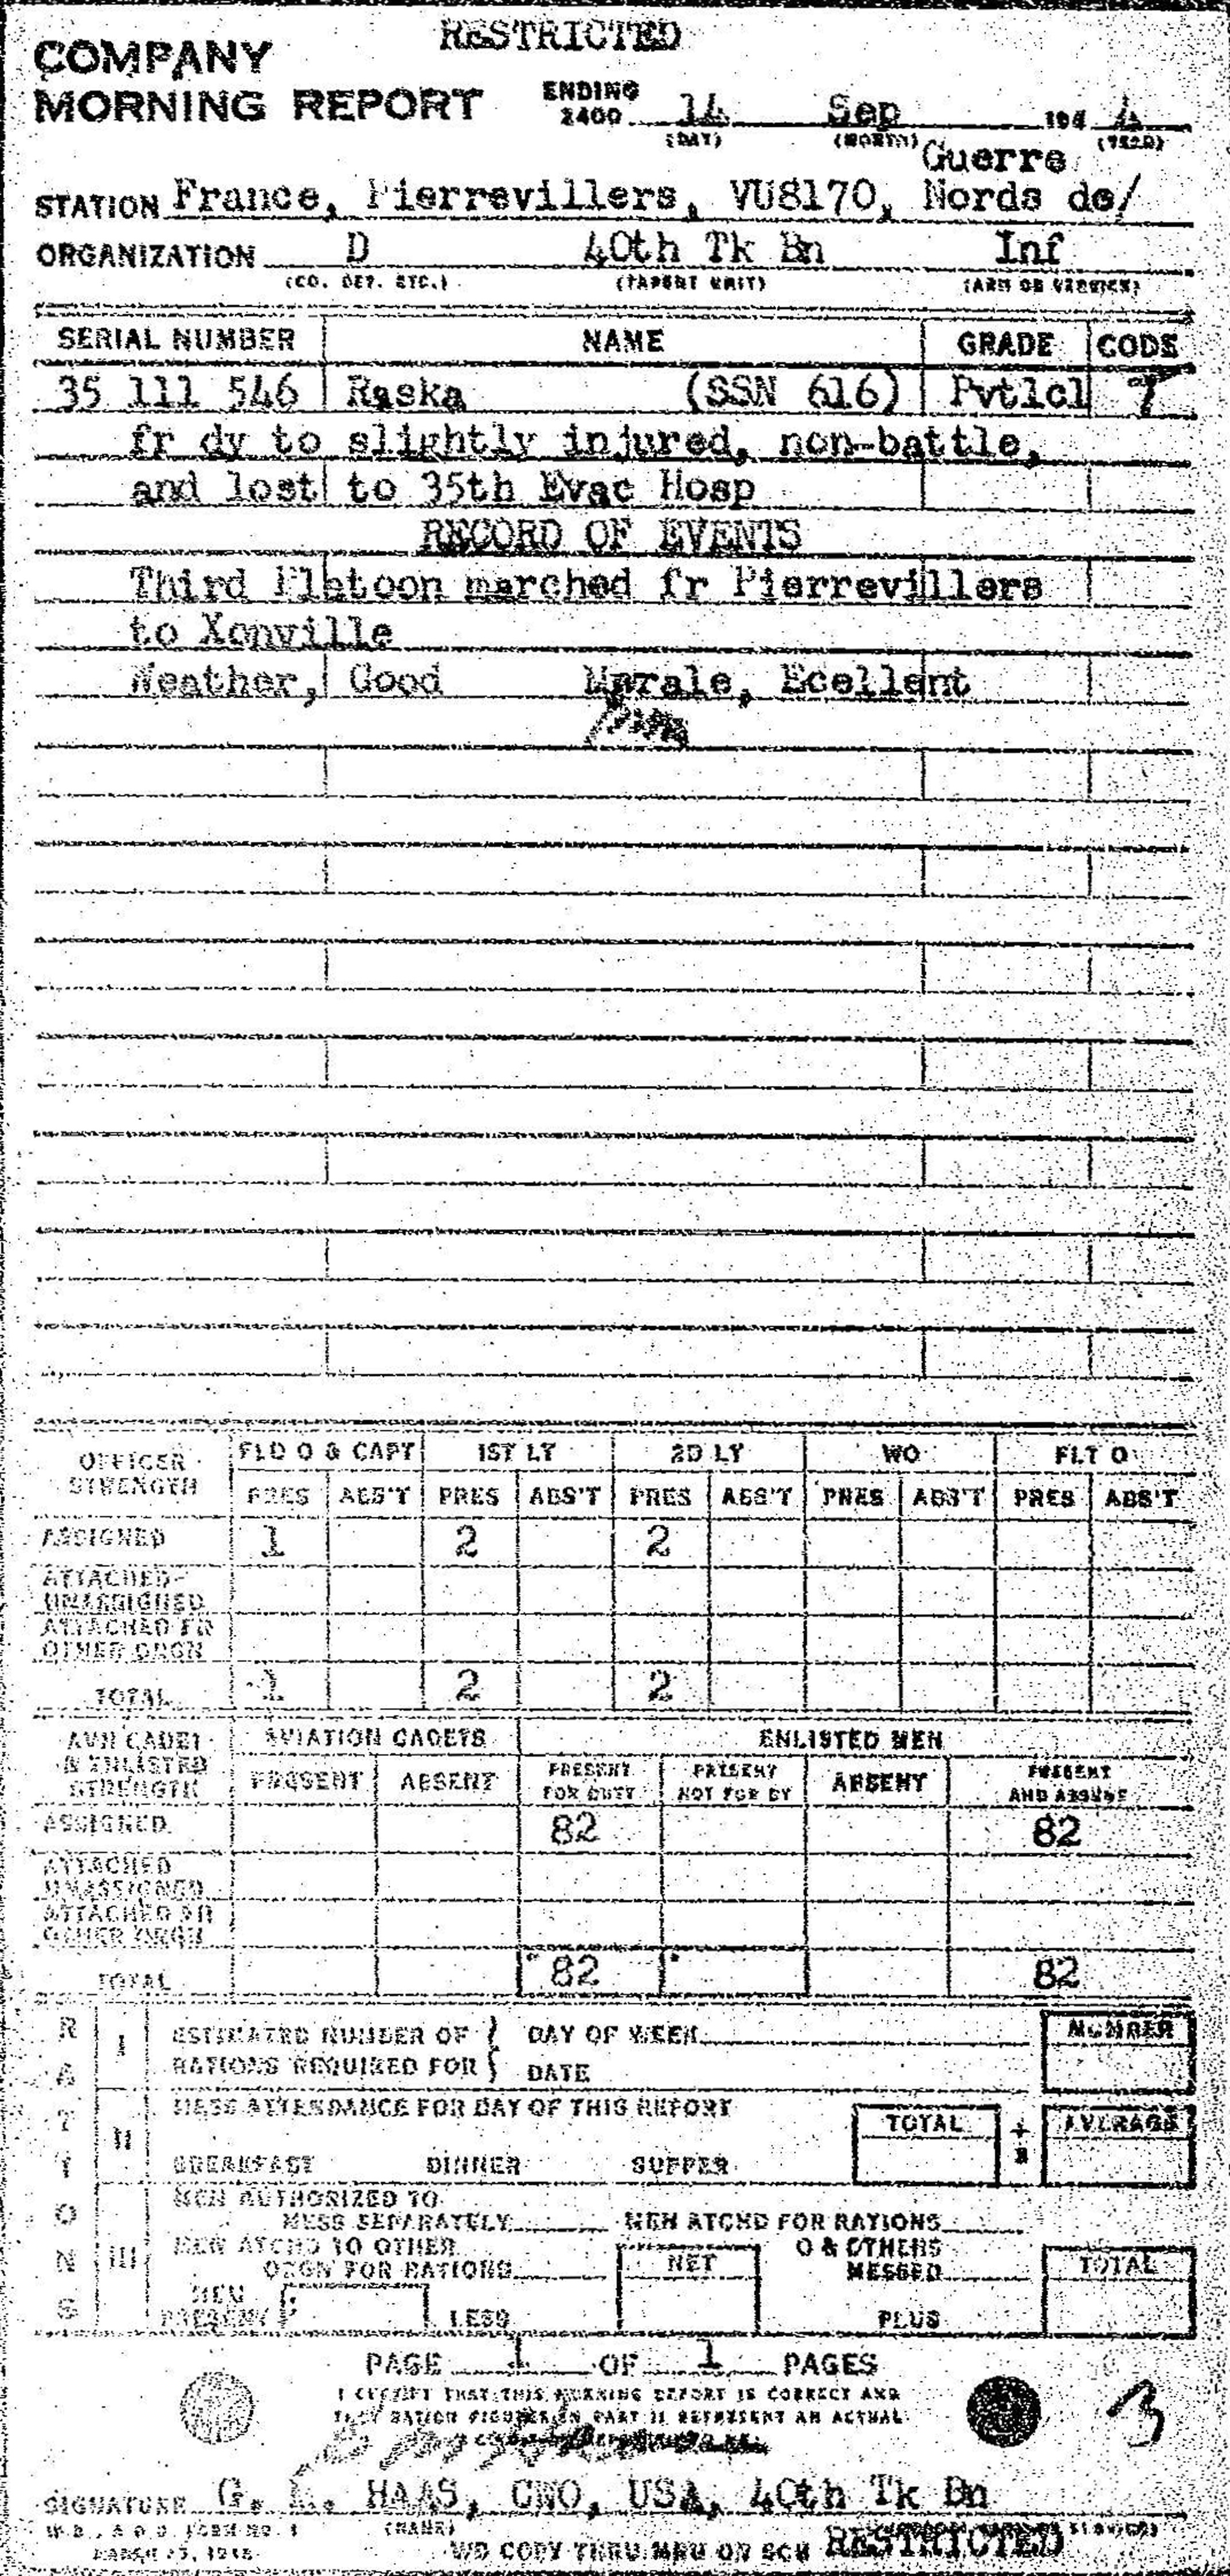 RESTRICTED
COMPANY
MORNING REPORT ENDING 2400 14 Sep 194 4
(DAY) (MONTH) (YEAR)
Guerre
STATION France, Pierrevillers, VU8170, Nords de/
ORGANIZATION D 40th Tk Bn Inf
(CO. DET. ETC.) (PARENT UNIT) (ARM OR SERVICE)
SERIAL NUMBER NAME GRADE CODE
35 111 546 Raska (SSN 616) Pvt1cl 7
fr dy to slightly injured, non-battle,
and lost to 35th Evac Hosp
RECORD OF EVENTS
Third Platoon marched fr Pierrevillers
to Xonville
Weather, Good Morale, Ecellent
OFFICER STRENGTH FLD O & CAPT 1ST LT 2D LT WO FLT O
PRES ABS'T PRES ABS'T PRES ABS'T PRES ABS'T PRES ABS'T
ASSIGNED 1 2 2
ATTACHED-
UNASSIGNED
ATTACHED FR
OTHER ORGN
TOTAL 1 2 2
AVN CADET & ENLISTED STRENGTH AVIATION CADETS ENLISTED MEN
PRESENT ABSENT PRESENT FOR DUTY PRESENT NOT FOR DY ABSENT PRESENT AND ABSENT
ASSIGNED 82 82
ATTACHED
UNASSIGNED
ATTACHED FR
OTHER ORGN
TOTAL 82 82
RATIONS
I ESTIMATED NUMBER OF DAY OF WEEK NUMBER
RATIONS REQUIRED FOR DATE
II MESS ATTENDANCE FOR DAY OF THIS REPORT TOTAL ÷ 3 AVERAGE
BREAKFAST DINNER SUPPER
MEN AUTHORIZED TO
MESS SEPARATELY MEN ATCHD FOR RATIONS
III MEN ATCHD TO OTHER
ORGN FOR RATIONS NET O & OTHERS MESSED TOTAL
MEN PRESENT LESS PLUS
PAGE 1 OF 1 PAGES
I CERTIFY THAT THIS MORNING REPORT IS CORRECT AND
THAT RATION FIGURES IN PART II REPRESENT AN ACTUAL
3
SIGNATURE G. HAAS, CWO, USA, 40th Tk Bn
W.D., A.G.O. FORM NO. 1 (NAME)
MARCH 15, 1943 WD COPY THRU MRU OR SCU RESTRICTED